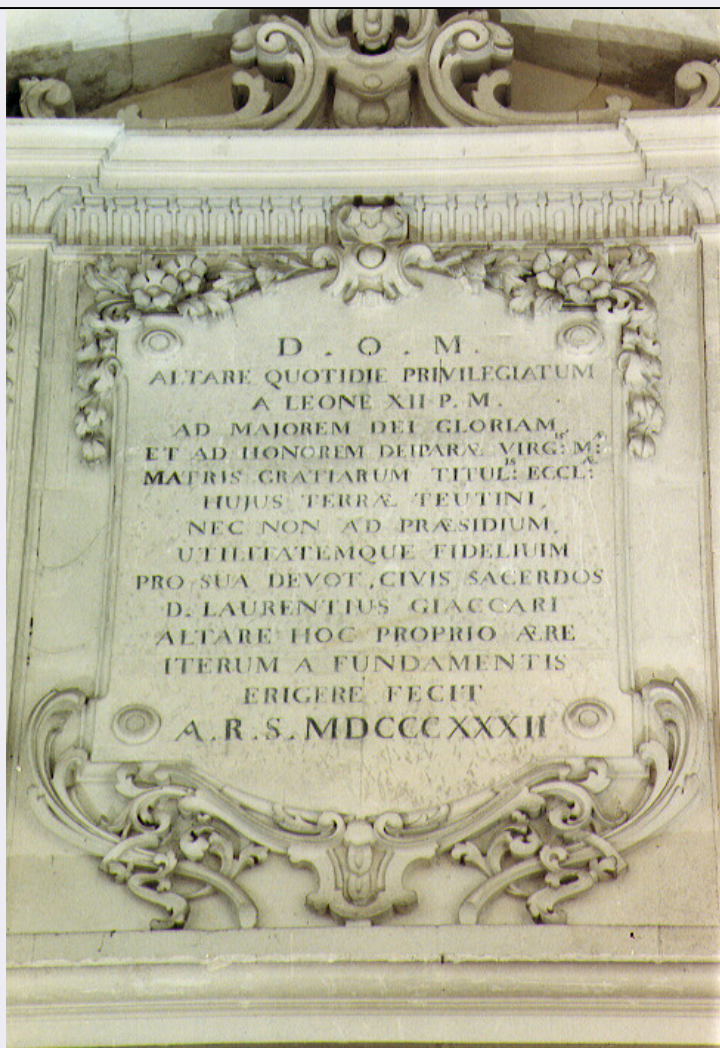 D . O . M .
ALTARE QUOTIDIE PRIVILEGIATUM
A LEONE XII P. M.
AD MAJOREM DEI GLORIAM,
ET AD HONOREM DEIPARÆ VIRG:IS M:Æ
MATRIS GRATIARUM TITUL:IS ECCL:Æ
HUJUS TERRÆ TEUTINI,
NEC NON AD PRÆSIDIUM,
UTILITATEMQUE FIDELIUIM
PRO SUA DEVOT., CIVIS SACERDOS
D. LAURENTIUS GIACCARI
ALTARE HOC PROPRIO ÆRE
ITERUM A FUNDAMENTIS
ERIGERE FECIT
A.R.S. MDCCCXXXII